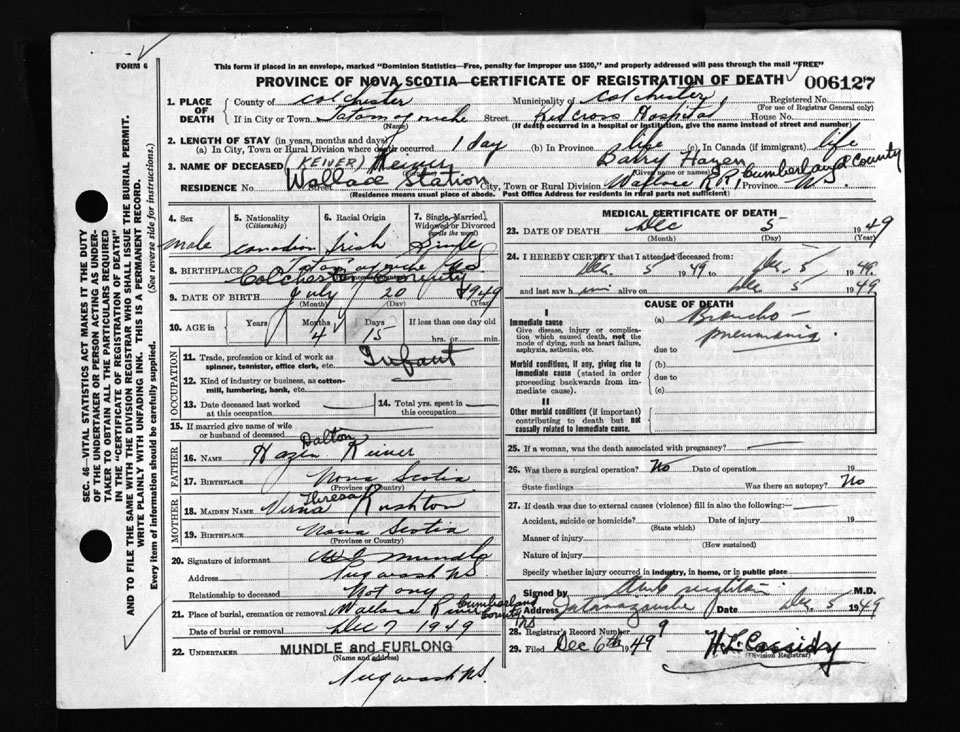 FORM 6
This form if placed in an envelope, marked "Dominion Statistics—Free, penalty for improper use $300," and properly addressed will pass through the mail "FREE"
PROVINCE OF NOVA SCOTIA—CERTIFICATE OF REGISTRATION OF DEATH
006127
1. PLACE OF DEATH County of Colchester Municipality of Colchester Registered No.
(For use of Registrar General only)
If in City or Town Tatamagouche Street Red Cross Hospital House No.
(Name) (If death occurred in a hospital or institution, give the name instead of street and number)
2. LENGTH OF STAY (in years, months and days)
(a) In City, Town or Rural Division where death occurred 1 day (b) In Province life (c) In Canada (if immigrant) life
3. NAME OF DECEASED (KEIVER) Keiver Barry Hazen
(Given name or names)
RESIDENCE No. Wallace Station Street City, Town or Rural Division Wallace R.R. 1 Cumberland County Province N.S.
(Residence means usual place of abode. Post Office Address for residents in rural parts not sufficient)
4. Sex 5. Nationality (Citizenship) 6. Racial Origin 7. Single, Married, Widowed or Divorced (write the word)
male Canadian Irish Single
8. BIRTHPLACE Tatamagouche NS
Colchester County
9. DATE OF BIRTH July 20 1949
(Month) (Day) (Year)
10. AGE in Years Months Days If less than one day old
4 15 hrs. or min.
OCCUPATION
11. Trade, profession or kind of work as spinner, teamster, office clerk, etc. Infant
12. Kind of industry or business, as cotton-mill, lumbering, bank, etc.
13. Date deceased last worked at this occupation 14. Total yrs. spent in this occupation
15. If married give name of wife or husband of deceased
FATHER
16. NAME Hazen Dalton Keiver
17. BIRTHPLACE Nova Scotia
(Province or Country)
MOTHER
18. MAIDEN NAME Verna Theresa Rushton
19. BIRTHPLACE Nova Scotia
(Province or Country)
20. Signature of informant Mundle
Address Pugwash NS.
Relationship to deceased Not any
21. Place of burial, cremation or removal Wallace River Cumberland County NS
Date of burial or removal Dec 7 1949
22. UNDERTAKER MUNDLE and FURLONG
(Name and address)
Pugwash NS.
MEDICAL CERTIFICATE OF DEATH
23. DATE OF DEATH Dec 5 1949
(Month) (Day) (Year)
24. I HEREBY CERTIFY that I attended deceased from:
Dec. 5 1949 to Dec. 5 1949
and last saw him alive on Dec 5 1949
CAUSE OF DEATH
I
Immediate cause (a) Broncho-pneumonia
Give disease, injury or complication which caused death, not the mode of dying, such as heart failure, asphyxia, asthenia, etc.
due to
Morbid conditions, if any, giving rise to immediate cause (stated in order proceeding backwards from immediate cause). (b)
due to
(c)
II
Other morbid conditions (if important) contributing to death but not causally related to immediate cause.
25. If a woman, was the death associated with pregnancy?
26. Was there a surgical operation? No Date of operation 19
State findings Was there an autopsy? No
27. If death was due to external causes (violence) fill in also the following:—
Accident, suicide or homicide? Date of injury 19
(State which)
Manner of injury
(How sustained)
Nature of injury
Specify whether injury occurred in industry, in home, or in public place
Signed by M.D.
Address Tatamagouche Date Dec. 5 1949
28. Registrar's Record Number 9
29. Filed Dec 6th 1949 H.L. Cassidy
(Division Registrar)
SEC. 46—VITAL STATISTICS ACT MAKES IT THE DUTY
OF THE UNDERTAKER OR PERSON ACTING AS UNDER-
TAKER TO OBTAIN ALL THE PARTICULARS REQUIRED
IN THE "CERTIFICATE OF REGISTRATION OF DEATH"
AND TO FILE THE SAME WITH THE DIVISION REGISTRAR WHO SHALL ISSUE THE BURIAL PERMIT.
WRITE PLAINLY WITH UNFADING INK. THIS IS A PERMANENT RECORD.
Every item of information should be carefully supplied. (See reverse side for instructions.)